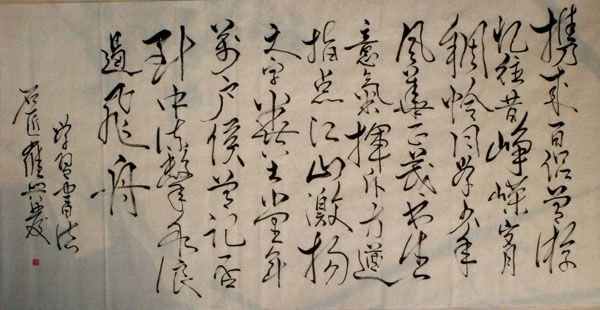 携来百侣曾游
忆往昔峥嵘岁月
稠恰同学少年
風華正茂书生
意氣挥斥方遒
指点江山激扬
文字粪土当年
萬户侯曾记否
到中流擊水浪
遏飞舟
学習书法
石匠崔